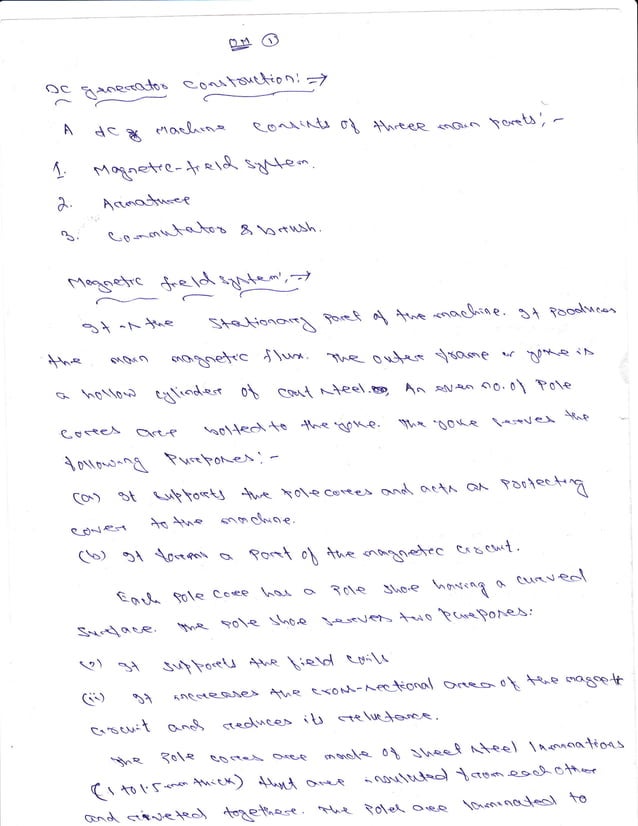 DM ①
DC generator construction:⇒
A dC Machine consists of three main parts:-
1. Magnetic-field system.
2. Armature
3. Commutator & brush.
Magnetic field system:⇒
It is the stationary part of the machine. It produces
the main magnetic flux. The outer frame or yoke is
a hollow cylinder of cast steel. An even no. of Pole
cores are bolted to the yoke. The yoke serves the
following Purposes:-
(a) It supports the pole cores and acts as protecting
cover to the machine.
(b) It forms a part of the magnetic circuit.
Each pole core has a pole shoe having a curved
surface. The pole shoe serves two Purposes:
(i) It supports the field coils
(ii) It increases the cross-sectional area of the magnetic
circuit and reduces its reluctance.
The pole cores are made of sheet steel laminations
(1 to 1.5 mm thick) that are insulated from each other
and riveted together. The poles are laminated to